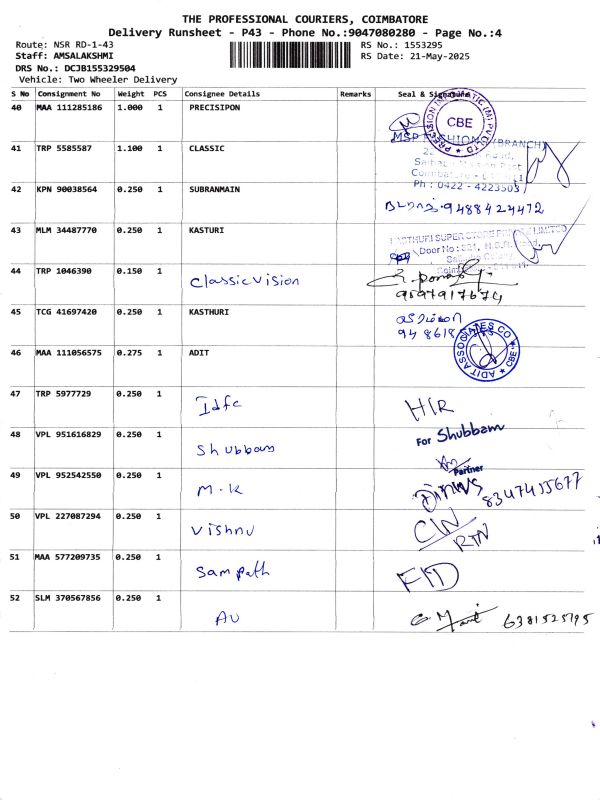 THE PROFESSIONAL COURIERS, COIMBATORE
Delivery Runsheet - P43 - Phone No.:9047080280 - Page No.:4
Route: NSR RD-1-43 RS No.: 1553295
Staff: AMSALAKSHMI RS Date: 21-May-2025
DRS No.: DCJB155329504
Vehicle: Two Wheeler Delivery
S No Consignment No Weight PCS Consignee Details Remarks Seal & Signature
40 MAA 111285186 1.000 1 PRECISIPON
CBE
(BRANCH)
41 TRP 5585587 1.100 1 CLASSIC
Ph : 0422 - 4223503
42 KPN 90038564 0.250 1 SUBRANMAIN
9488424472
43 MLM 34487770 0.250 1 KASTURI
44 TRP 1046390 0.150 1 Classic vision
45 TCG 41697420 0.250 1 KASTHURI
46 MAA 111056575 0.275 1 ADIT
ADIT ASSOCIATES CO CBE
47 TRP 5977729 0.250 1 Idfc H/R
48 VPL 951616829 0.250 1 Shubbam For Shubbam
Partner
49 VPL 952542550 0.250 1 M.K
50 VPL 227087294 0.250 1 Vishnu
51 MAA 577209735 0.250 1 Sampath
52 SLM 370567856 0.250 1 AU 6381525795